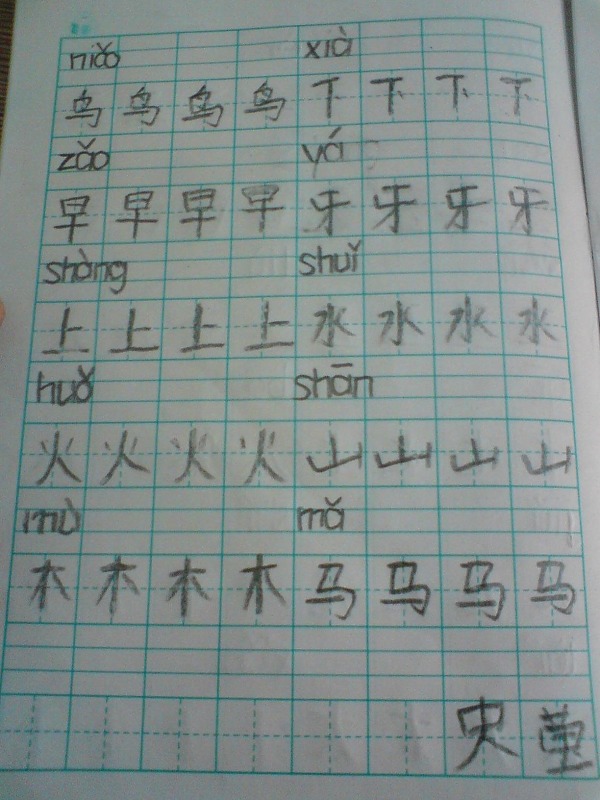 niǎo xià
鸟 鸟 鸟 鸟 下 下 下 下
zǎo yá
早 早 早 早 牙 牙 牙 牙
shàng shuǐ
上 上 上 上 水 水 水 水
huǒ shān
火 火 火 火 山 山 山 山
mù mǎ
木 木 木 木 马 马 马 马
史